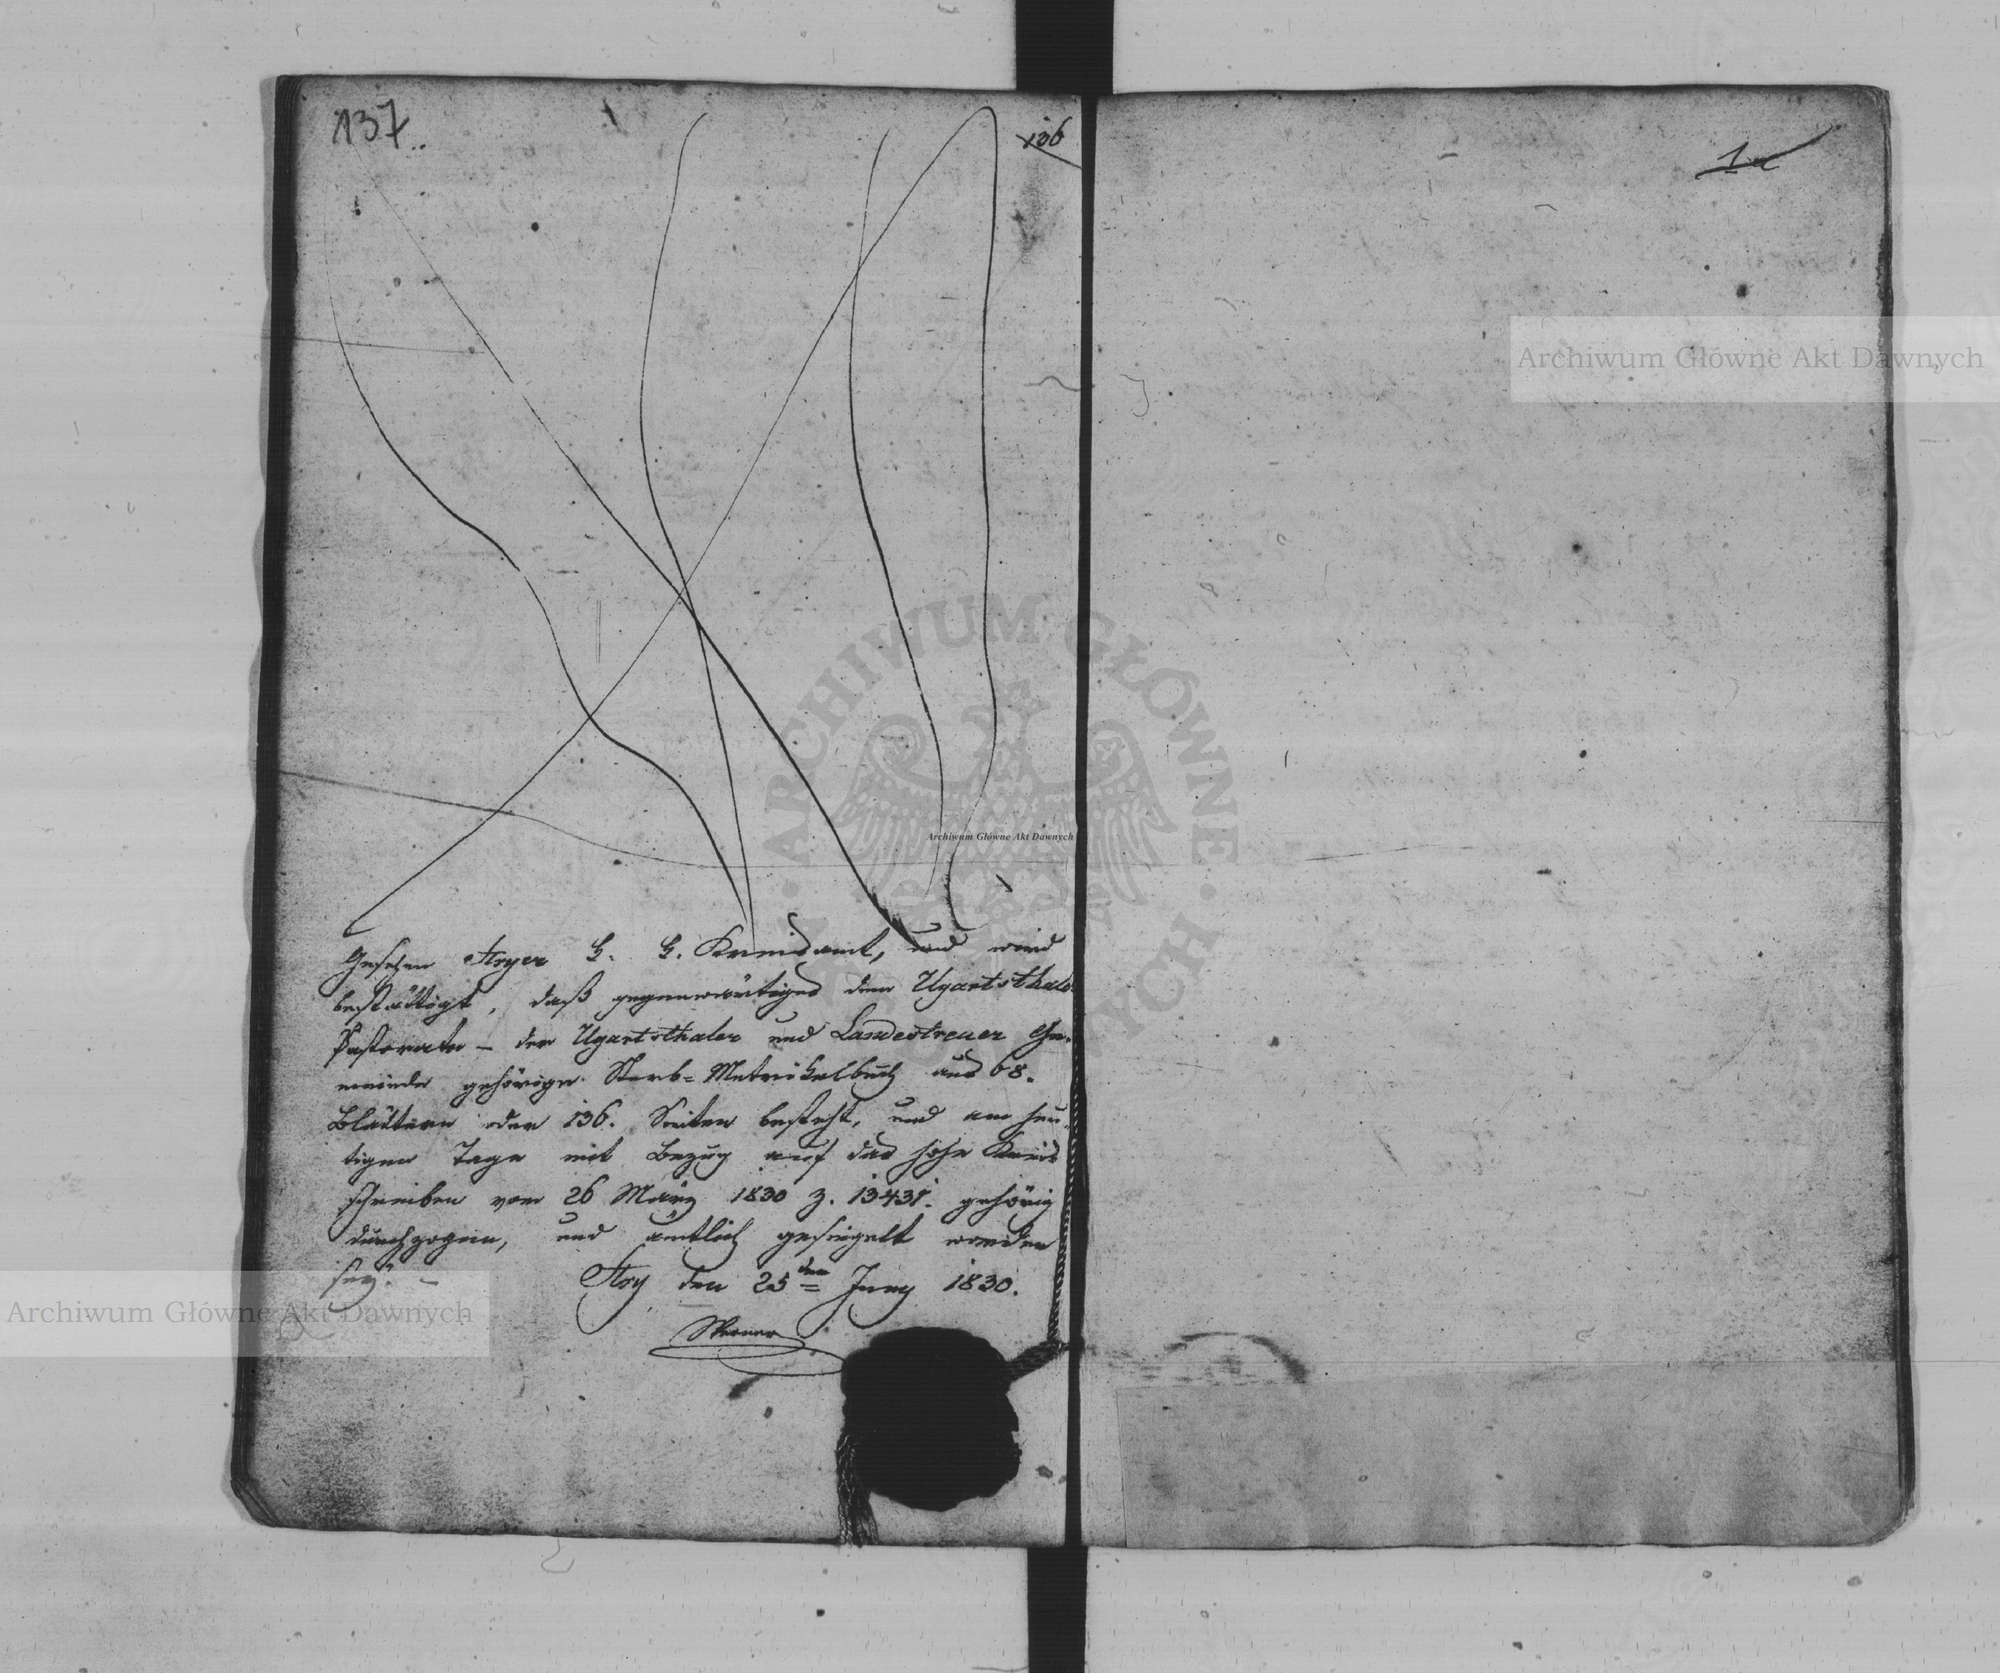 137
136
1a
Archiwum Główne Akt Dawnych
ARCHIWUM GŁÓWNE AKT DAWNYCH
Archiwum Główne Akt Dawnych
Gesehen Stryer k. k. Kreisamt, und wird
bestättigt, daß gegenwärtiges dem Ugartsthaler
Pastorate – der Ugartsthaler und Landestreuer Ge-
meinde gehörige Sterb-Metrikelbuch aus 68.
Blättern oder 136. Seiten besteht, und am heu-
tigen Tage mit Bezug auf das hohe Kreis
schreiben vom 26 März 1830 Z. 13431. gehörig
durchzogen, und ämtlich gesiegelt worden
sey. –
Stry den 25ten Juny 1830.
Archiwum Główne Akt Dawnych